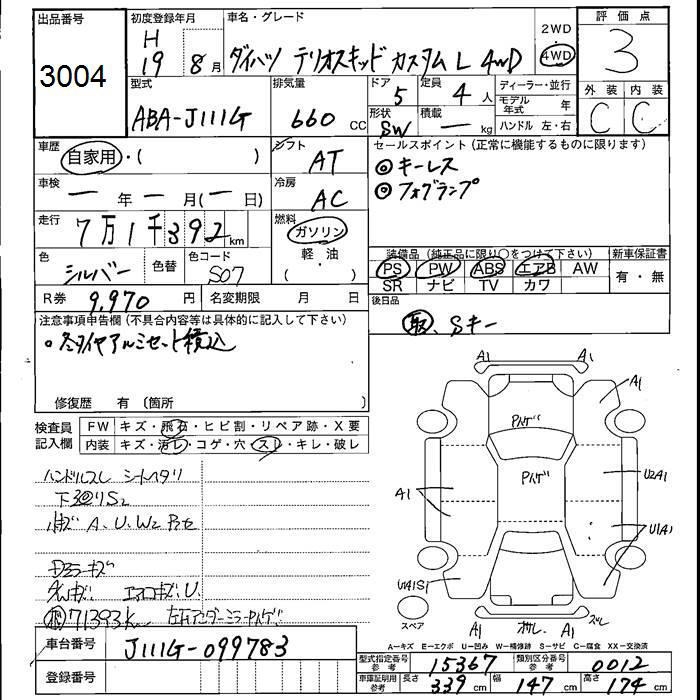 出品番号 初度登録年月 車名・グレード 2WD 評価点
3004 H 19 8月 ダイハツ テリオスキッド カスタムL 4WD 4WD 3
型式 排気量 ドア 定員 ディーラー・並行 外装 内装
ABA-J111G 660 CC 5 4人 モデル年式 年 C C
形状 積載 ハンドル 左・右
SW ー kg
車歴 自家用・( ) シフト AT セールスポイント(正常に機能するものに限ります)
◎キーレス
車検 ー年ー月(ー日) 冷房 AC ◎フォグランプ
走行 7万1千392km 燃料 ガソリン 軽・油 ( )
色 シルバー 色替 色コード S07 装備品(純正品に限り○をつけて下さい) 新車保証書
PS PW ABS エアB AW 有・無
SR ナビ TV カワ
R券 9,970円 名変期限 月 日 後日品
注意事項申告欄(不具合内容等は具体的に記入して下さい) 取、Sキー
・冬タイヤアルミセット積込
修復歴 有 〔箇所 〕
検査員記入欄 FW キズ・飛石・ヒビ割・リペア跡・X要
内装 キズ・汚レ・コゲ・穴・スレ・キレ・破レ
ハンドルスレ シートヘタリ
下回りS2
A、U、W2
ドアミラーキズ
エアロキズ、U
71393km 左アンダーミラー
A1 A1
A1
Pハゲ
Pハゲ
U2A1
A1
U1A1
U4A1S1
スペア
A1 A1 ズレ
A-キズ E-エクボ U-凹み W-補修跡 S-サビ C-腐食 XX-交換済
車台番号 J111G-099783 型式指定番号 参考 15367 類別区分番号 参考 0012
登録番号 車庫証明用 参考 長さ 339cm 幅 147cm 高さ 174cm